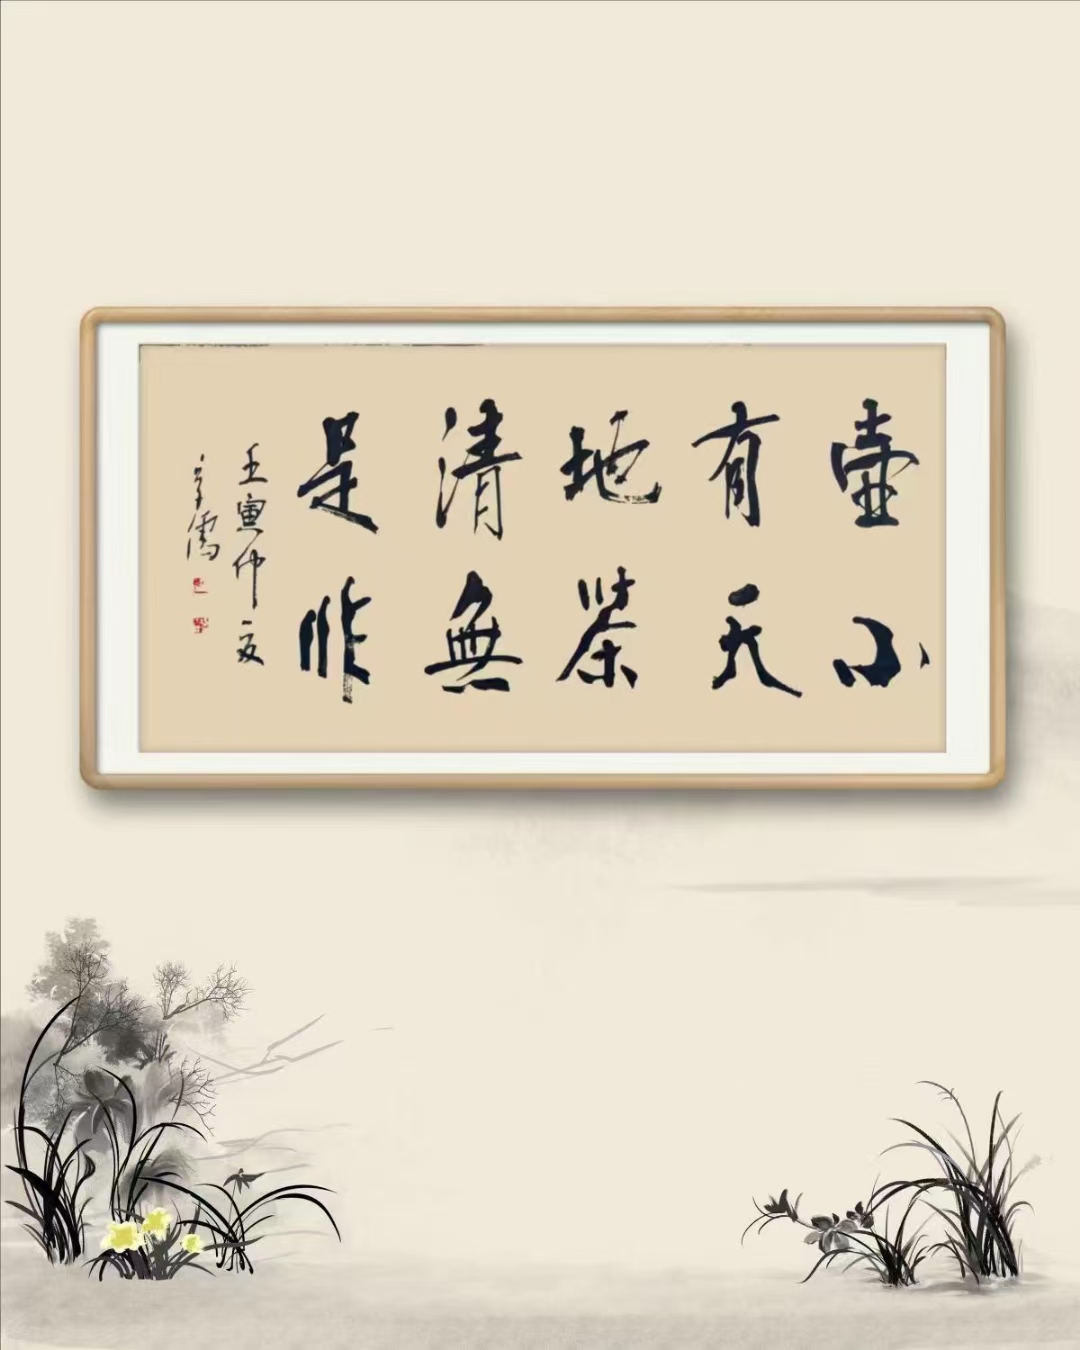 壶小
有天
地茶
清無
是非
壬寅仲夏